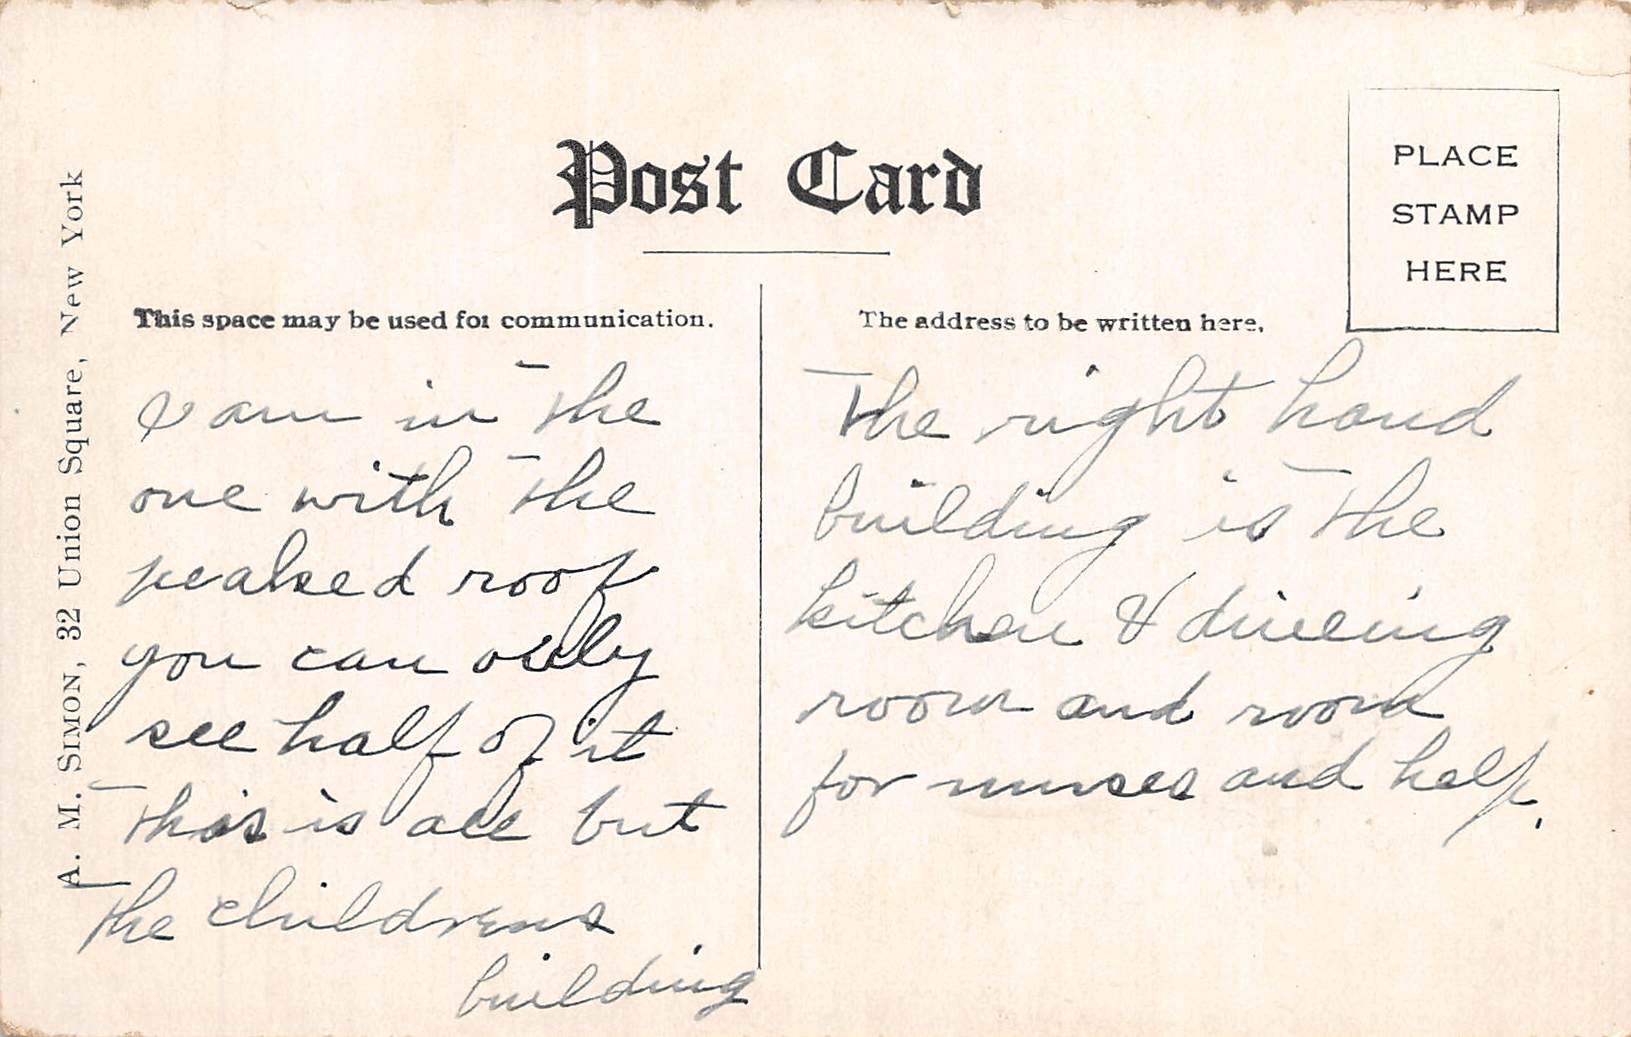 Post Card
PLACE
STAMP
HERE
A. M. SIMON, 32 Union Square, New York
This space may be used for communication.
I am in the
one with the
peaked roof
you can only
see half of it
This is all but
the childrens
building
The address to be written here.
The right hand
building is the
kitchen & dineing
room and room
for nurses and help.